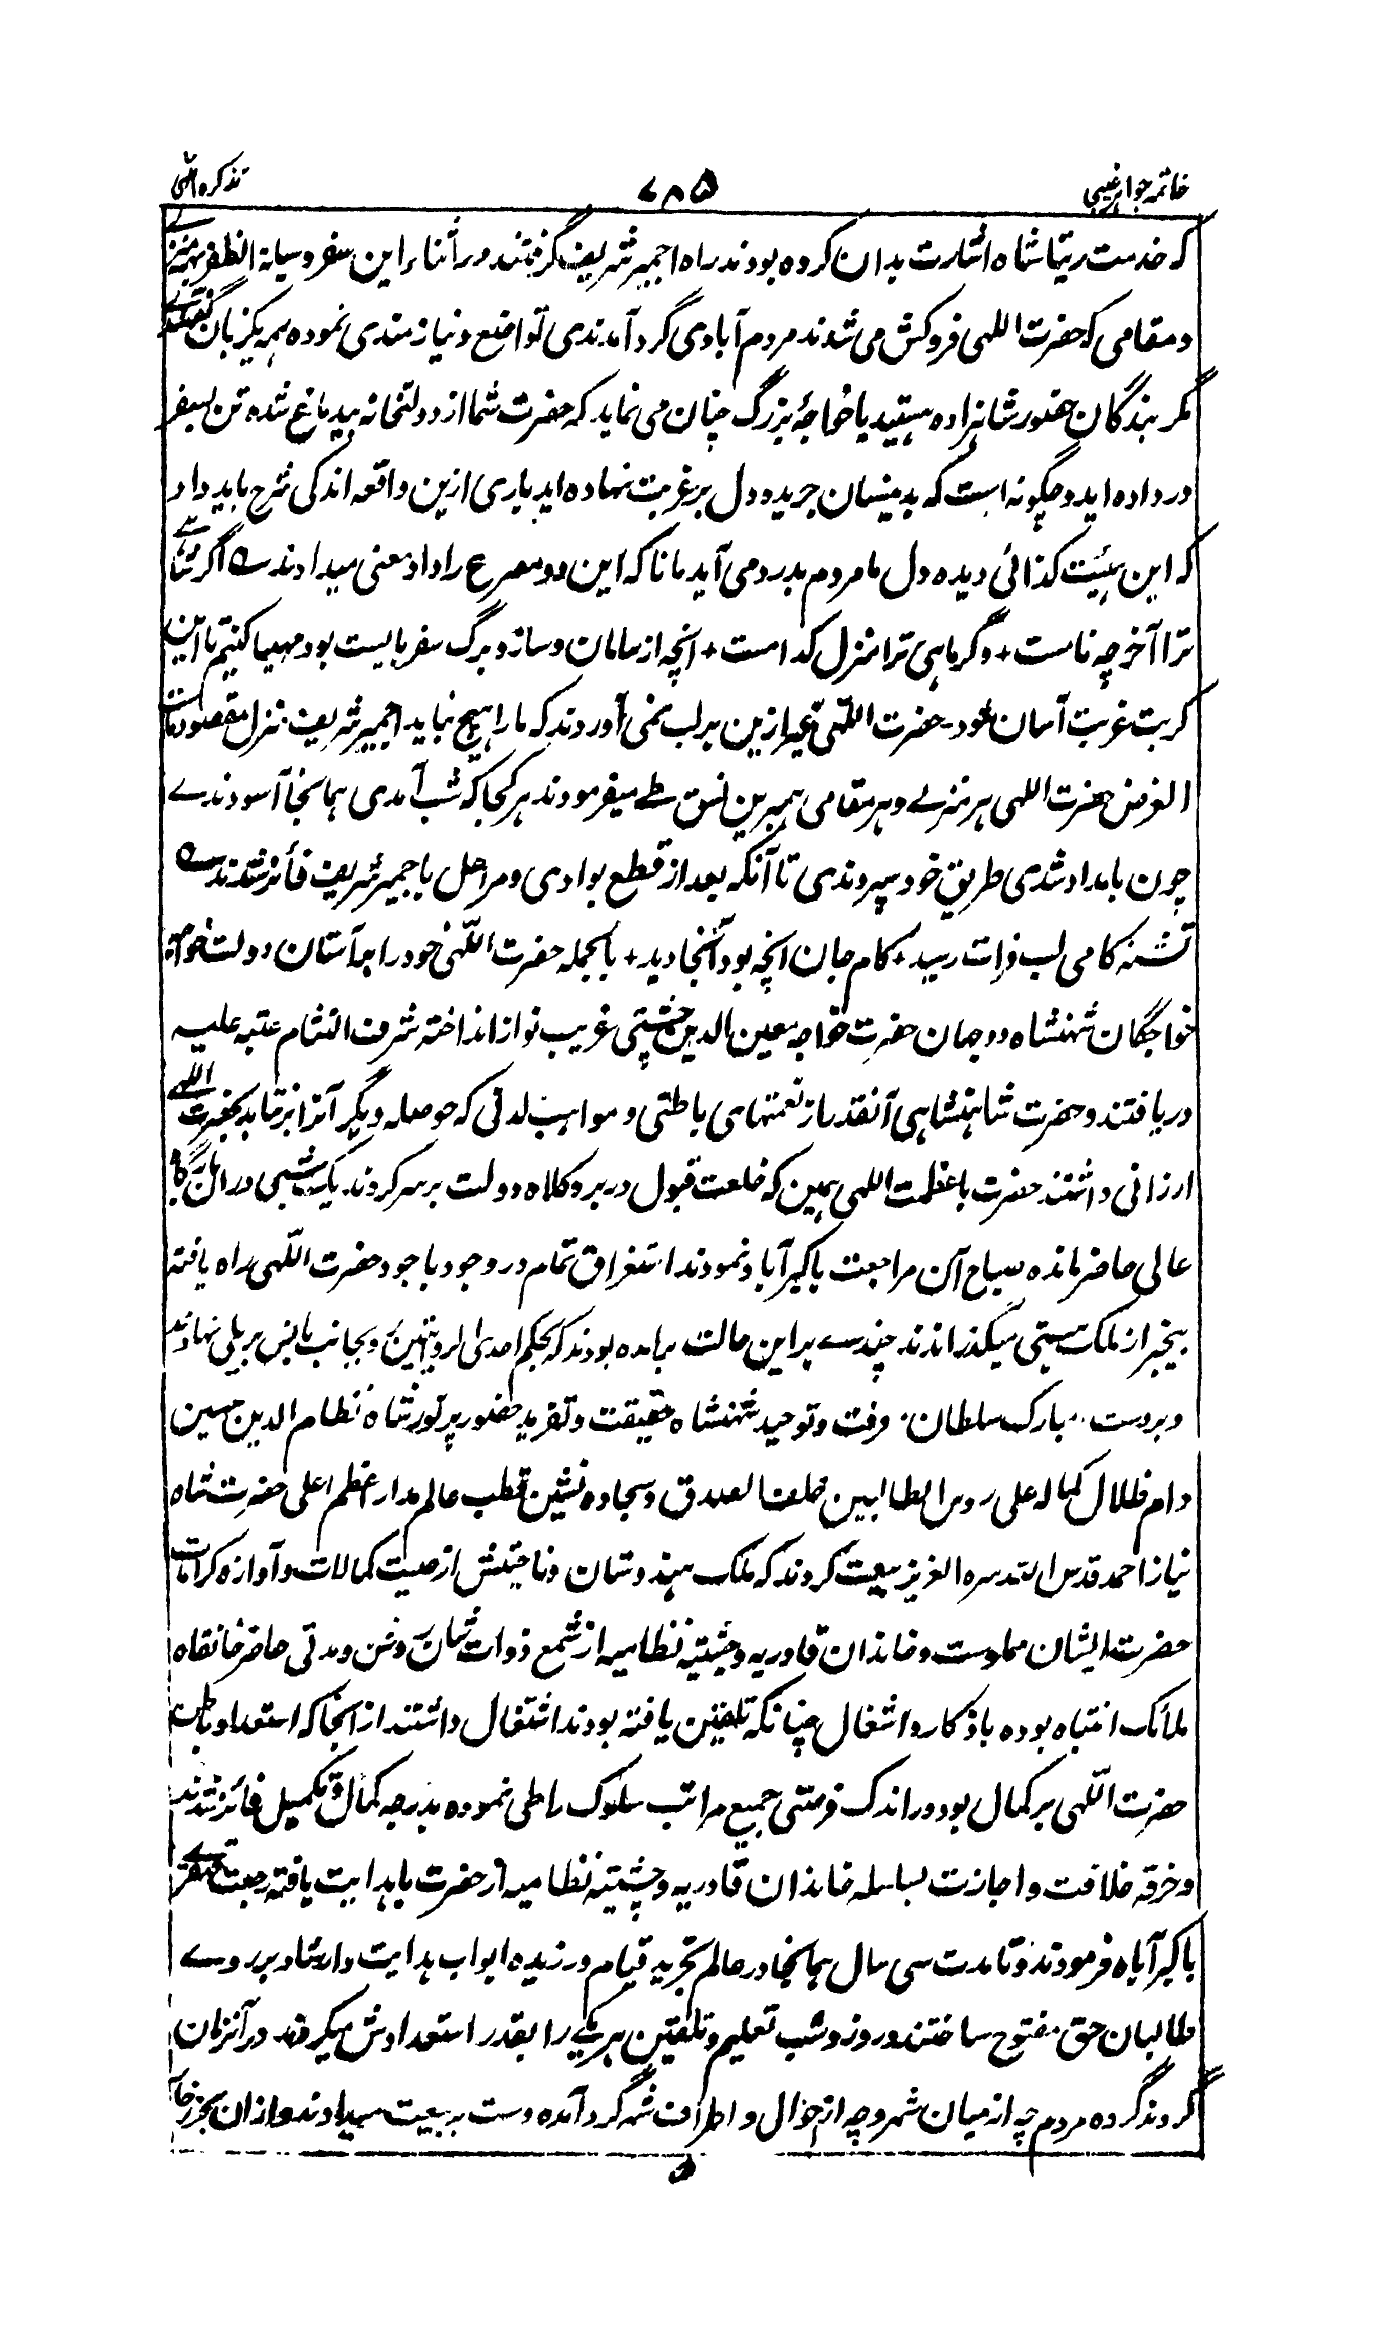 خاتمه جواہر غیبی ۷۸۵ تذکرہ الٰہی
که خدمت ریتا شاه اشارت بدان کرده بودند راه اجمیر شریف گرفتند در اثناء این سفر وسیلة الظفر بهر منزلے
و مقامی که حضرت اللهی فروکش می شدند مردم آبادی گرد آمدندی تواضع و نیازمندی نموده همه یکزبان گفتندے
مگر بندگان حضور شاهزاده هستید یا خواجۂ بزرگ چنان می نماید که حضرت شما از دولتخانه بیدماغ شده تن بسفر
در داده اید و چگونه است که بدینسان جریده دل بر غربت نهاده اید باری ازین واقعه اندکی شرح باید داد
که این هیئت کذائی دیده دل ما مردم بدرد می آید مانا که این دو مصرع را داد معنی میدادند ے اگر شاهے
ترا آخر چه نامست + وگر ماهی ترا منزل کدامست + آنچه از سامان و ساز و برگ سفر بایست بود مهیا کنیم تا این
کربت غربت آسان شود - حضرت اللّٰهی غیر ازین بر لب نمی آوردند که ما را هیچ نباید اجمیر شریف منزل مقصود ماست
الغرض حضرت اللهی هر منزلے و هر مقامی همبرین نسق طے میفرمودند هر کجا که شب آمدی همانجا آسودندے
چون بامداد شدی طریق خود سپردندی تا آنکه بعد از قطع بوادی و مراحل باجمیر شریف فائز شدند ے
تشنه کامی لب فرات رسید + کام جان آنچه بود آنجا دید + بالجمله حضرت اللّٰهی خود را بر آستان دولت خواجۂ
خواجگان شهنشاه دو جهان حضرت خواجه معین الدین چشتی غریب نواز انداخته شرف التشام عتبه علیه
دریافتند و حضرت شاهنشاهی آنقدر از نعمتهای باطنی و مواهب لدنی که حوصله دیگر آنرا برنتابد بحضرت اللهے
ارزانی داشتند حضرت با عظمت اللهی همین که خلعت قبول در بر و کلاه دولت بر سر کردند یک شبی در ان بارگاه
عالی حاضر مانده صباح آن مراجعت باکبرآباد نمودند استغراق تمام در وجود باجود حضرت اللّٰهی راه یافته
بیخبر از ملک هستی میگذراندند چندے براین حالت برآمده بودند که بحکم احدی الرویتین و بجانب بانس بریلی نهادند
و بر دست مبارک سلطان معرفت و توحید شهنشاه حقیقت و تفرید حضور پر نور شاه نظام الدین حسین
دام ظلال کماله علی روس الطالبین خلف الصدق و سجاده نشین قطب عالم مدار اعظم اعلی حضرت شاه
نیاز احمد قدس الله سره العزیز بیعت کردند که ملک هندوستان و ناحیتش از صیت کمالات و آوازه کرامات
حضرت ایشان مملوست و خاندان قادریه و چشتیه نظامیه از شمع ذوات شان روشن و مدتی حاضر خانقاه
ملائک انتباه بوده باذکار و اشغال چنانکه تلقین یافته بودند اشتغال داشتند از آنجا که استعداد باطن
حضرت اللّٰهی بر کمال بود در اندک فرصتی جمیع مراتب سلوک را طی نموده بدرجه کمال و تکمیل فائز شدند
و خرقه خلافت و اجازت بسلسله خاندان قادریه و چشتیه نظامیه از حضرت با هدایت یافته رجعت
باکبرآباد فرمودند و تا مدت سی سال همانجا در عالم تجرید قیام ورزیده ابواب هدایت و ارشاد بر روے
طالبان حق مفتوح ساختند و روز و شب تعلیم و تلقین هر یکے را بقدر استعدادش میکردند در آنزمان
گروه گروه مردم چه از میان شهر و چه از حوالی و اطراف شهر گرد آمده دست به بیعت میدادند و از ان